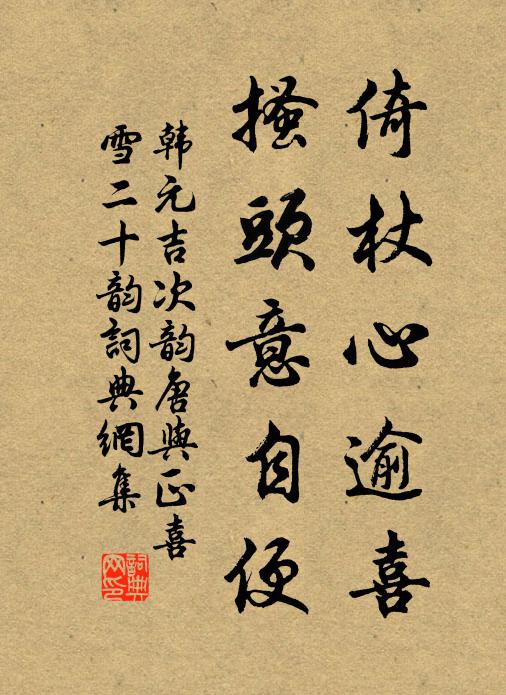 倚杖心逾喜
搔頭意自便
韩元吉次韵唐與正喜
雪二十韵詞典網集
詞典
网印